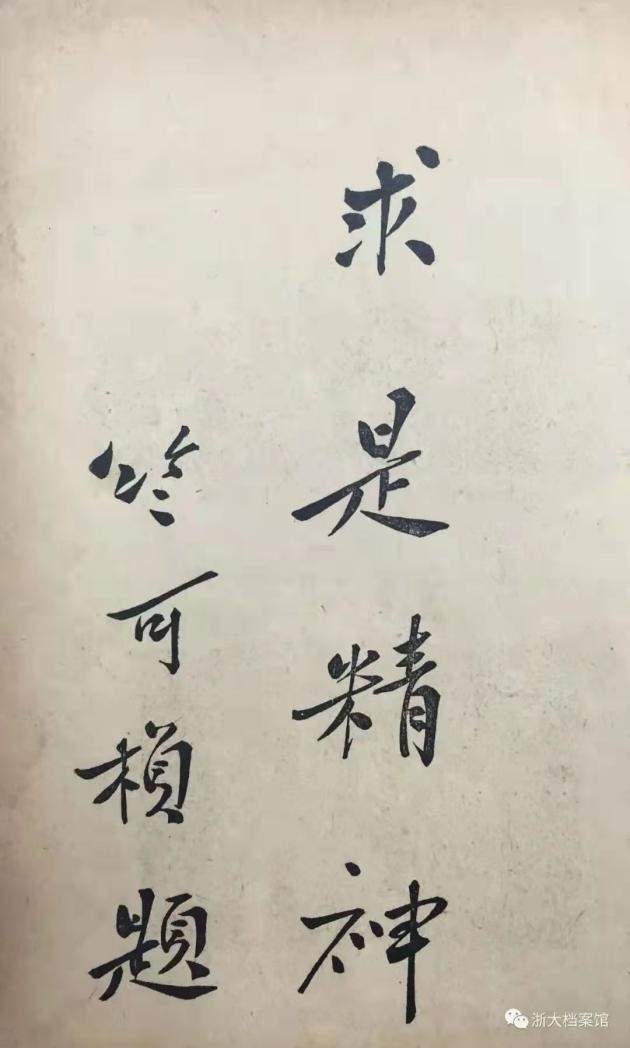 求是精神
竺可楨題
浙大档案馆